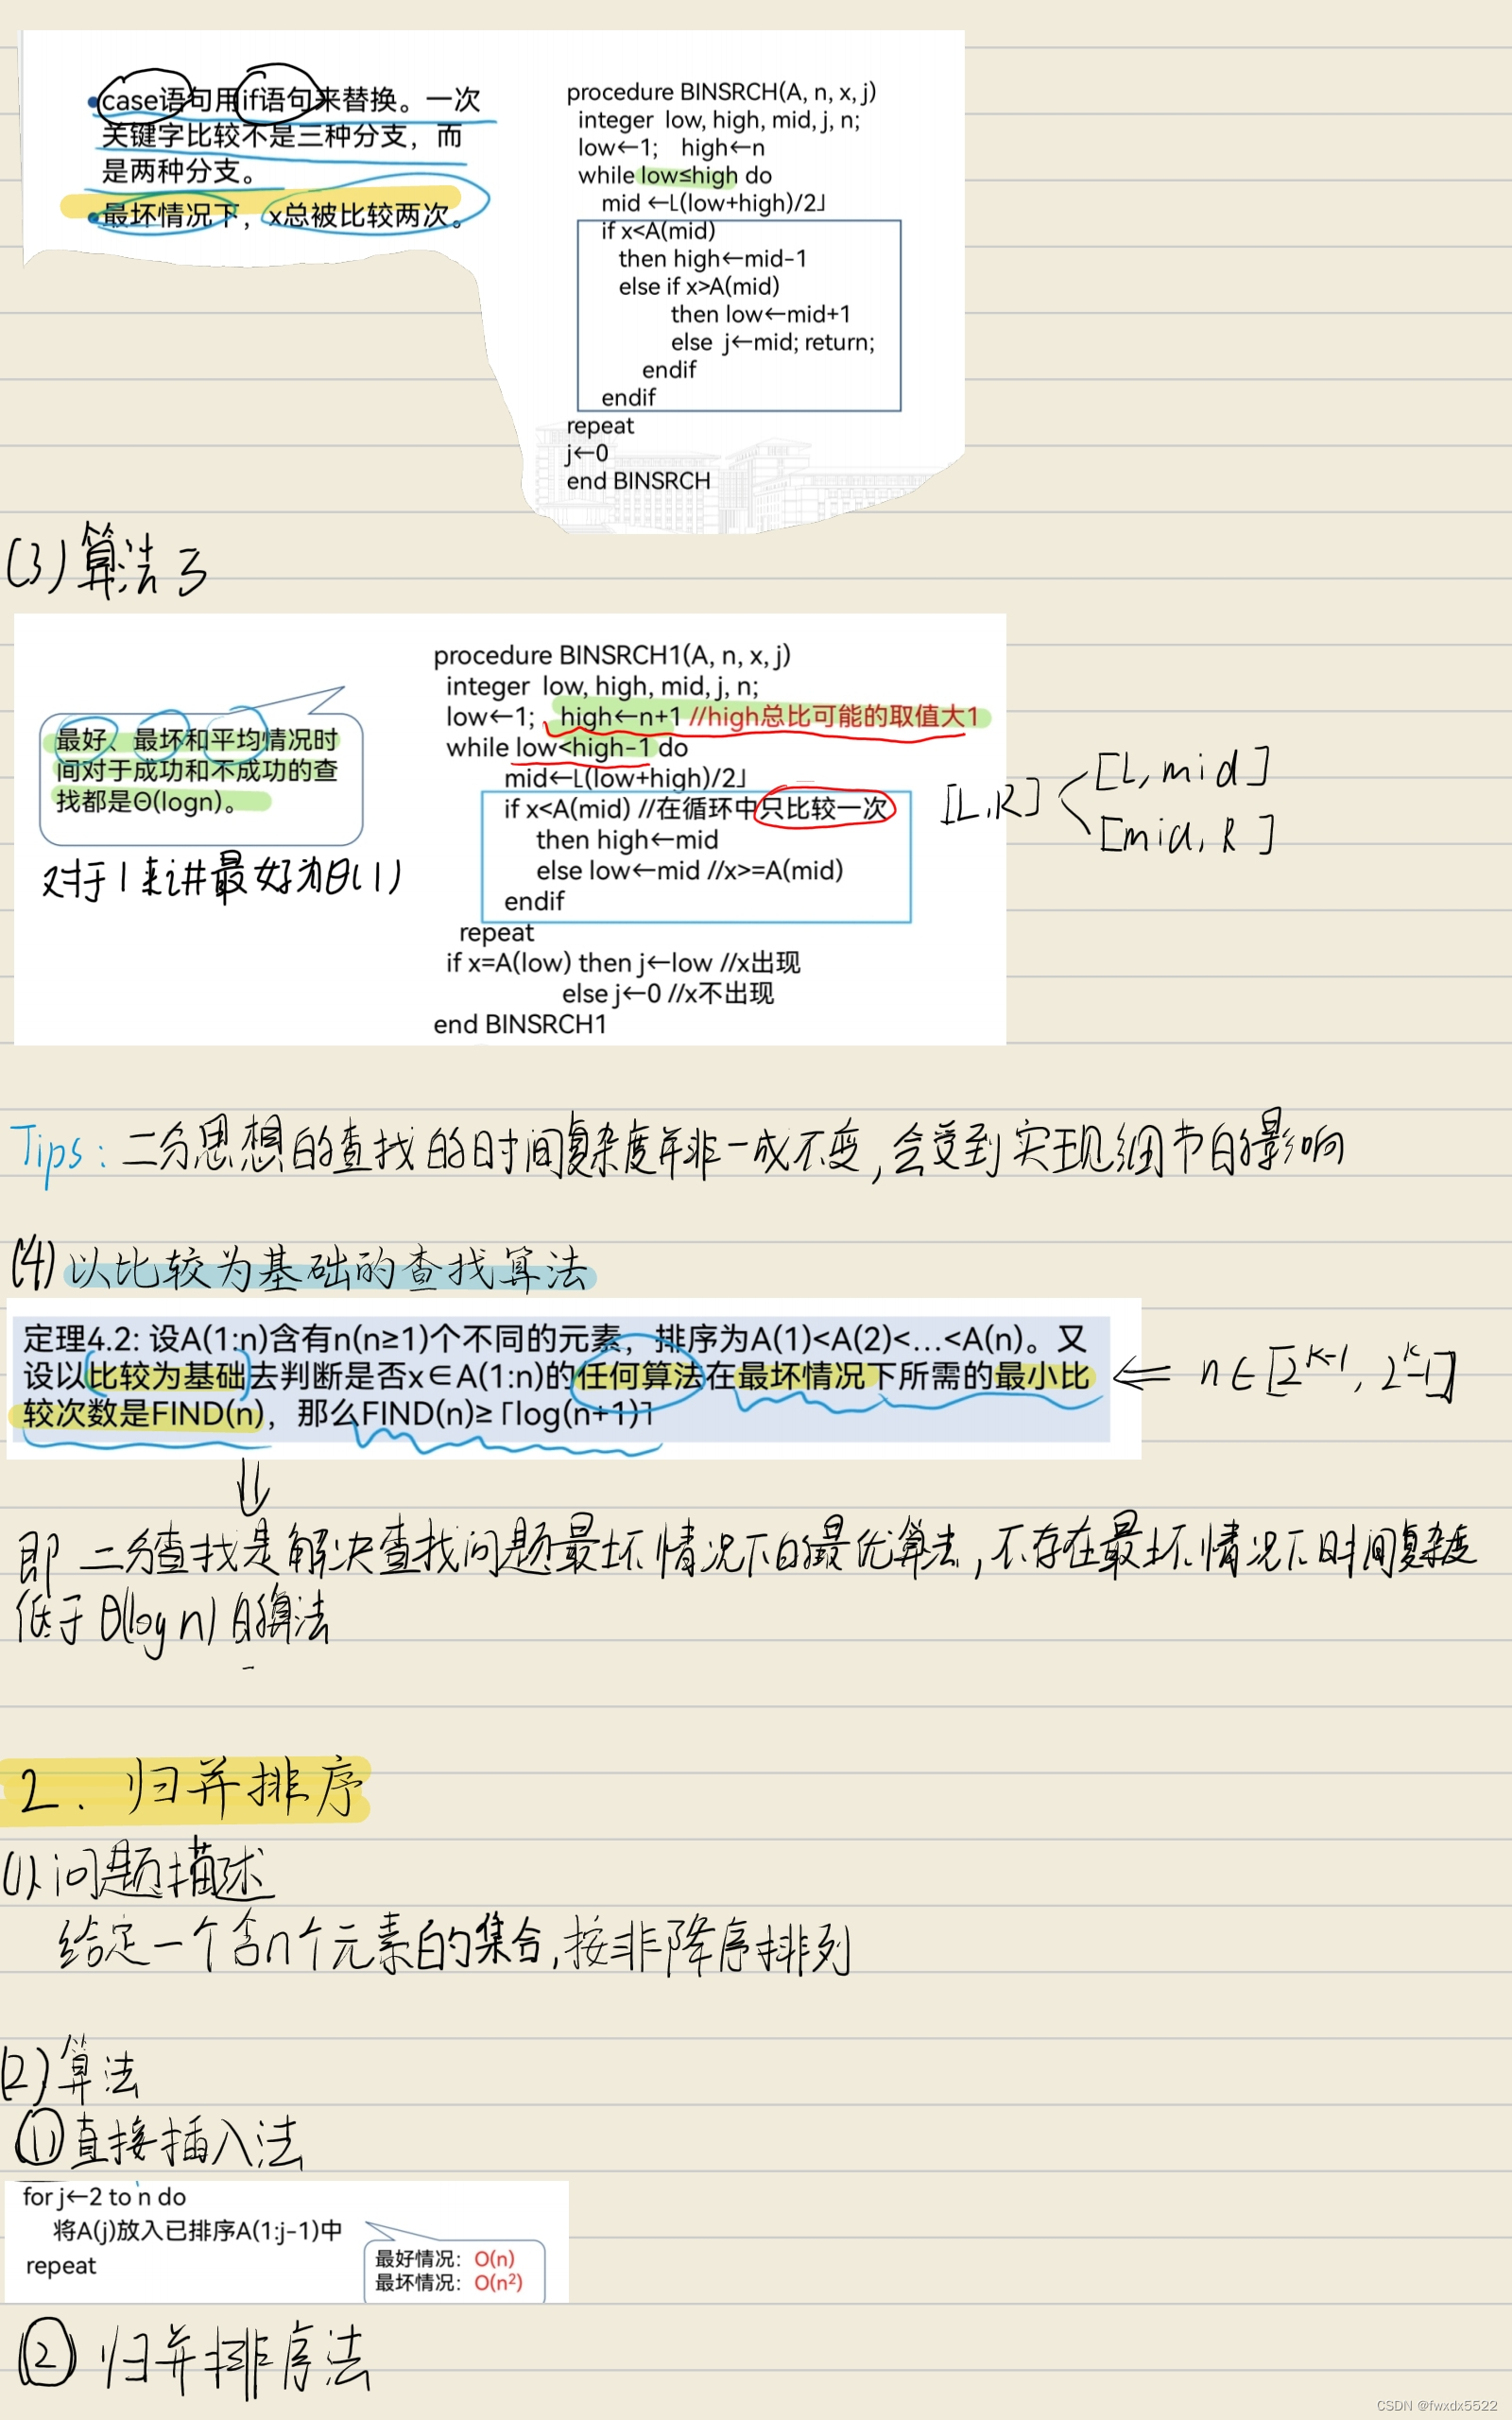 •case语句用if语句来替换。一次
关键字比较不是三种分支，而
是两种分支。
•最坏情况下，x总被比较两次。
procedure BINSRCH(A, n, x, j)
integer low, high, mid, j, n;
low←1; high←n
while low≤high do
mid ←⌊(low+high)/2⌋
if x<A(mid)
then high←mid-1
else if x>A(mid)
then low←mid+1
else j←mid; return;
endif
endif
repeat
j←0
end BINSRCH
(3)算法3
最好、最坏和平均情况时
间对于成功和不成功的查
找都是Θ(logn)。
对于1来讲最好为θ(1)
procedure BINSRCH1(A, n, x, j)
integer low, high, mid, j, n;
low←1; high←n+1 //high总比可能的取值大1
while low<high-1 do
mid←⌊(low+high)/2⌋
if x<A(mid) //在循环中只比较一次
then high←mid
else low←mid //x>=A(mid)
endif
repeat
if x=A(low) then j←low //x出现
else j←0 //x不出现
end BINSRCH1
[L,R]
[L,mid]
[mid,R]
Tips: 二分思想的查找的时间复杂度并非一成不变,会受到实现细节的影响
(4)以比较为基础的查找算法
定理4.2: 设A(1:n)含有n(n≥1)个不同的元素，排序为A(1)<A(2)<…<A(n)。又
设以比较为基础去判断是否x∈A(1:n)的任何算法在最坏情况下所需的最小比
较次数是FIND(n)，那么FIND(n)≥⌈log(n+1)⌉
⇐ n∈[2^{k-1}, 2^k-1]
⇓
即 二分查找是解决查找问题最坏情况下的最优算法,不存在最坏情况下时间复杂度
低于θ(log n)的算法
2. 归并排序
(1)问题描述
给定一个含n个元素的集合,按非降序排列
(2)算法
①直接插入法
for j←2 to n do
将A(j)放入已排序A(1:j-1)中
repeat
最好情况：O(n)
最坏情况：O(n²)
② 归并排序法
CSDN @fwxdx5522